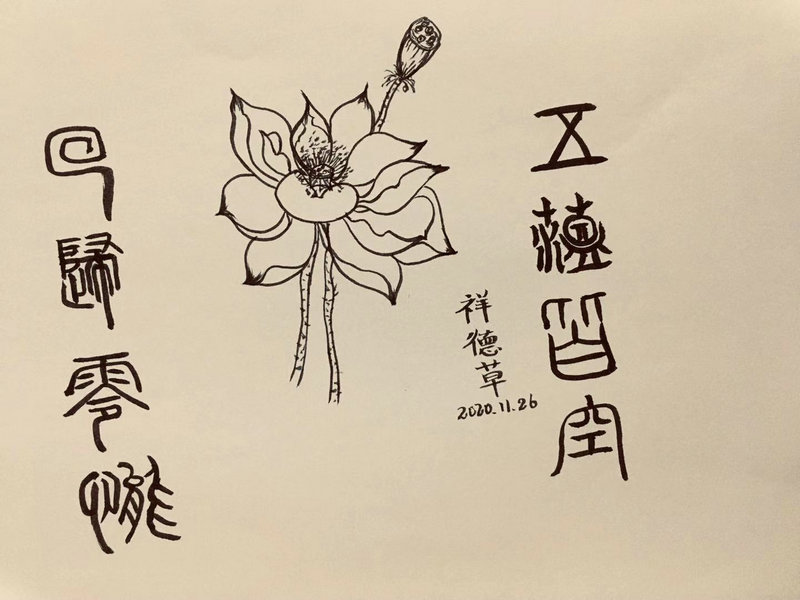 五蘊皆空
祥德草
2020.11.26
回歸零態